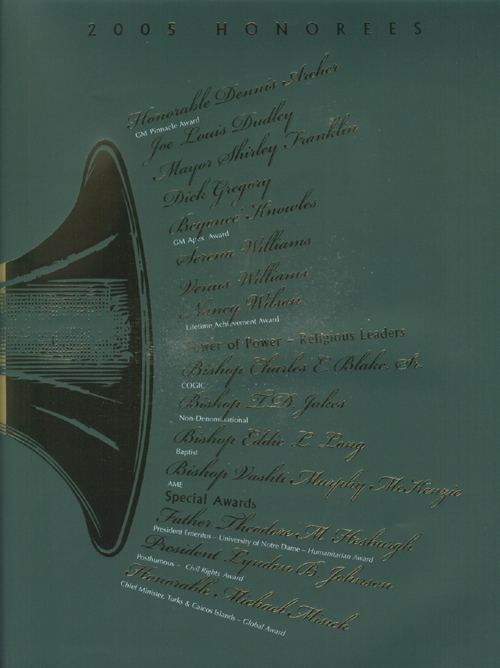 2005 HONOREES
Honorable Dennis Archer
GM Pinnacle Award
Joe Louis Dudley
Mayor Shirley Franklin
Dick Gregory
Beyoncé Knowles
GM Apex Award
Serena Williams
Venus Williams
Nancy Wilson
Lifetime Achievement Award
Power of Power – Religious Leaders
Bishop Charles E. Blake, Sr.
COGIC
Bishop T.D. Jakes
Non-Denominational
Bishop Eddie L. Long
Baptist
Bishop Vashti Murphy McKenzie
AME
Special Awards
Father Theodore M. Hesburgh
President Emeritus – University of Notre Dame – Humanitarian Award
President Lyndon B. Johnson
Posthumous – Civil Rights Award
Honorable Michael Misick
Chief Minister, Turks & Caicos Islands – Global Award